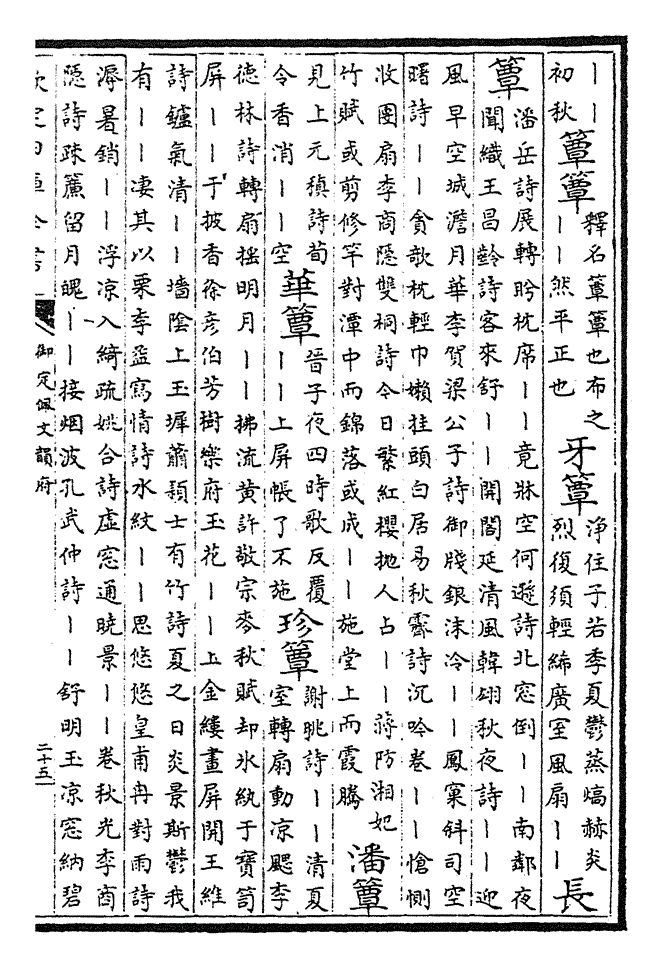 ｜｜
初秋
簟簟
釋名簟簟也布之
｜｜然平正也
牙簟
浄住子若季夏鬱蒸熇赫炎
烈復須輕締廣室風扇｜｜
長
簟
潘岳詩展轉眄枕席｜｜竟牀空何遜詩北窓倒｜｜南鄰夜
聞織王昌齡詩客來舒｜｜開閣延清風韓翃秋夜詩｜｜迎
風早空城澹月華李賀梁公子詩御牋銀沫冷｜｜鳳窠斜司空
曙詩｜｜貪欹枕輕巾懶挂頭白居易秋霽詩沉吟卷｜｜愴惻
收團扇李商隱雙桐詩今日繁紅櫻抛人占｜｜蔣防湘妃
竹賦或剪修竿對潭中而錦落或成｜｜施堂上而霞騰
潘簟
見上元稹詩荀
令香消｜｜空
華簟
晉子夜四時歌反覆
｜｜上屏帳了不施
珍簟
謝眺詩｜｜清夏
室轉扇動凉颸李
德林詩轉扇揺明月｜｜拂流黄許敬宗麥秋賦却氷紈于寶笥
屏｜｜于披香徐彦伯芳樹樂府玉花｜｜上金縷畫屏開王維
詩鑪氣清｜｜墻陰上玉墀蕭頴士有竹詩夏之日炎景斯鬱我
有｜｜凄其以栗李益寫情詩水紋｜｜思悠悠皇甫冉對雨詩
溽暑銷｜｜浮凉入綺疏姚合詩虚窓通曉景｜｜卷秋光李商
隱詩疎簾留月魄｜｜接烟波孔武仲詩｜｜舒明玉凉窓納碧
欽定四庫全書
御定佩文韻府
二十五